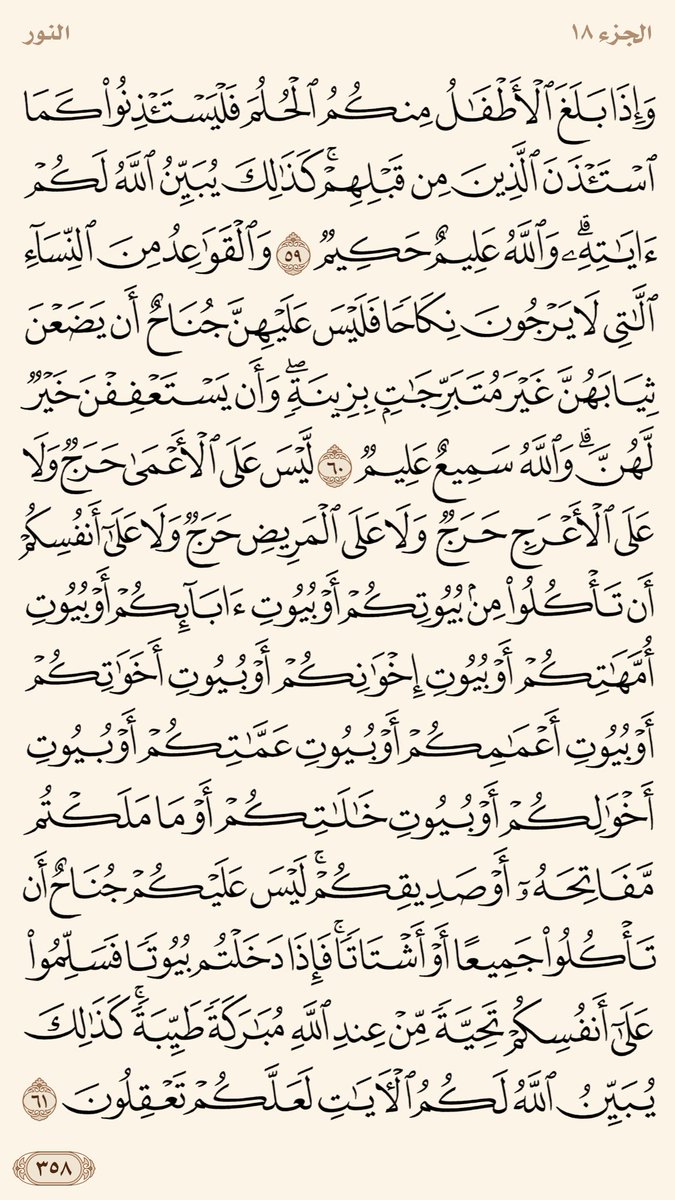 الجزء ١٨
النور
وَإِذَا بَلَغَ ٱلْأَطْفَٰلُ مِنكُمُ ٱلْحُلُمَ فَلْيَسْتَـْٔذِنُوا۟ كَمَا
ٱسْتَـْٔذَنَ ٱلَّذِينَ مِن قَبْلِهِمْ ۚ كَذَٰلِكَ يُبَيِّنُ ٱللَّهُ لَكُمْ
ءَايَٰتِهِۦ ۗ وَٱللَّهُ عَلِيمٌ حَكِيمٌ ٥٩ وَٱلْقَوَٰعِدُ مِنَ ٱلنِّسَآءِ
ٱلَّٰتِى لَا يَرْجُونَ نِكَاحًا فَلَيْسَ عَلَيْهِنَّ جُنَاحٌ أَن يَضَعْنَ
ثِيَابَهُنَّ غَيْرَ مُتَبَرِّجَٰتٍۭ بِزِينَةٍ ۖ وَأَن يَسْتَعْفِفْنَ خَيْرٌ
لَّهُنَّ ۗ وَٱللَّهُ سَمِيعٌ عَلِيمٌ ٦٠ لَّيْسَ عَلَى ٱلْأَعْمَىٰ حَرَجٌ وَلَا
عَلَى ٱلْأَعْرَجِ حَرَجٌ وَلَا عَلَى ٱلْمَرِيضِ حَرَجٌ وَلَا عَلَىٰٓ أَنفُسِكُمْ
أَن تَأْكُلُوا۟ مِنۢ بُيُوتِكُمْ أَوْ بُيُوتِ ءَابَآئِكُمْ أَوْ بُيُوتِ
أُمَّهَٰتِكُمْ أَوْ بُيُوتِ إِخْوَٰنِكُمْ أَوْ بُيُوتِ أَخَوَٰتِكُمْ
أَوْ بُيُوتِ أَعْمَٰمِكُمْ أَوْ بُيُوتِ عَمَّٰتِكُمْ أَوْ بُيُوتِ
أَخْوَٰلِكُمْ أَوْ بُيُوتِ خَٰلَٰتِكُمْ أَوْ مَا مَلَكْتُم
مَّفَاتِحَهُۥٓ أَوْ صَدِيقِكُمْ ۚ لَيْسَ عَلَيْكُمْ جُنَاحٌ أَن
تَأْكُلُوا۟ جَمِيعًا أَوْ أَشْتَاتًا ۚ فَإِذَا دَخَلْتُم بُيُوتًا فَسَلِّمُوا۟
عَلَىٰٓ أَنفُسِكُمْ تَحِيَّةً مِّنْ عِندِ ٱللَّهِ مُبَٰرَكَةً طَيِّبَةً ۚ كَذَٰلِكَ
يُبَيِّنُ ٱللَّهُ لَكُمُ ٱلْءَايَٰتِ لَعَلَّكُمْ تَعْقِلُونَ ٦١
٣٥٨